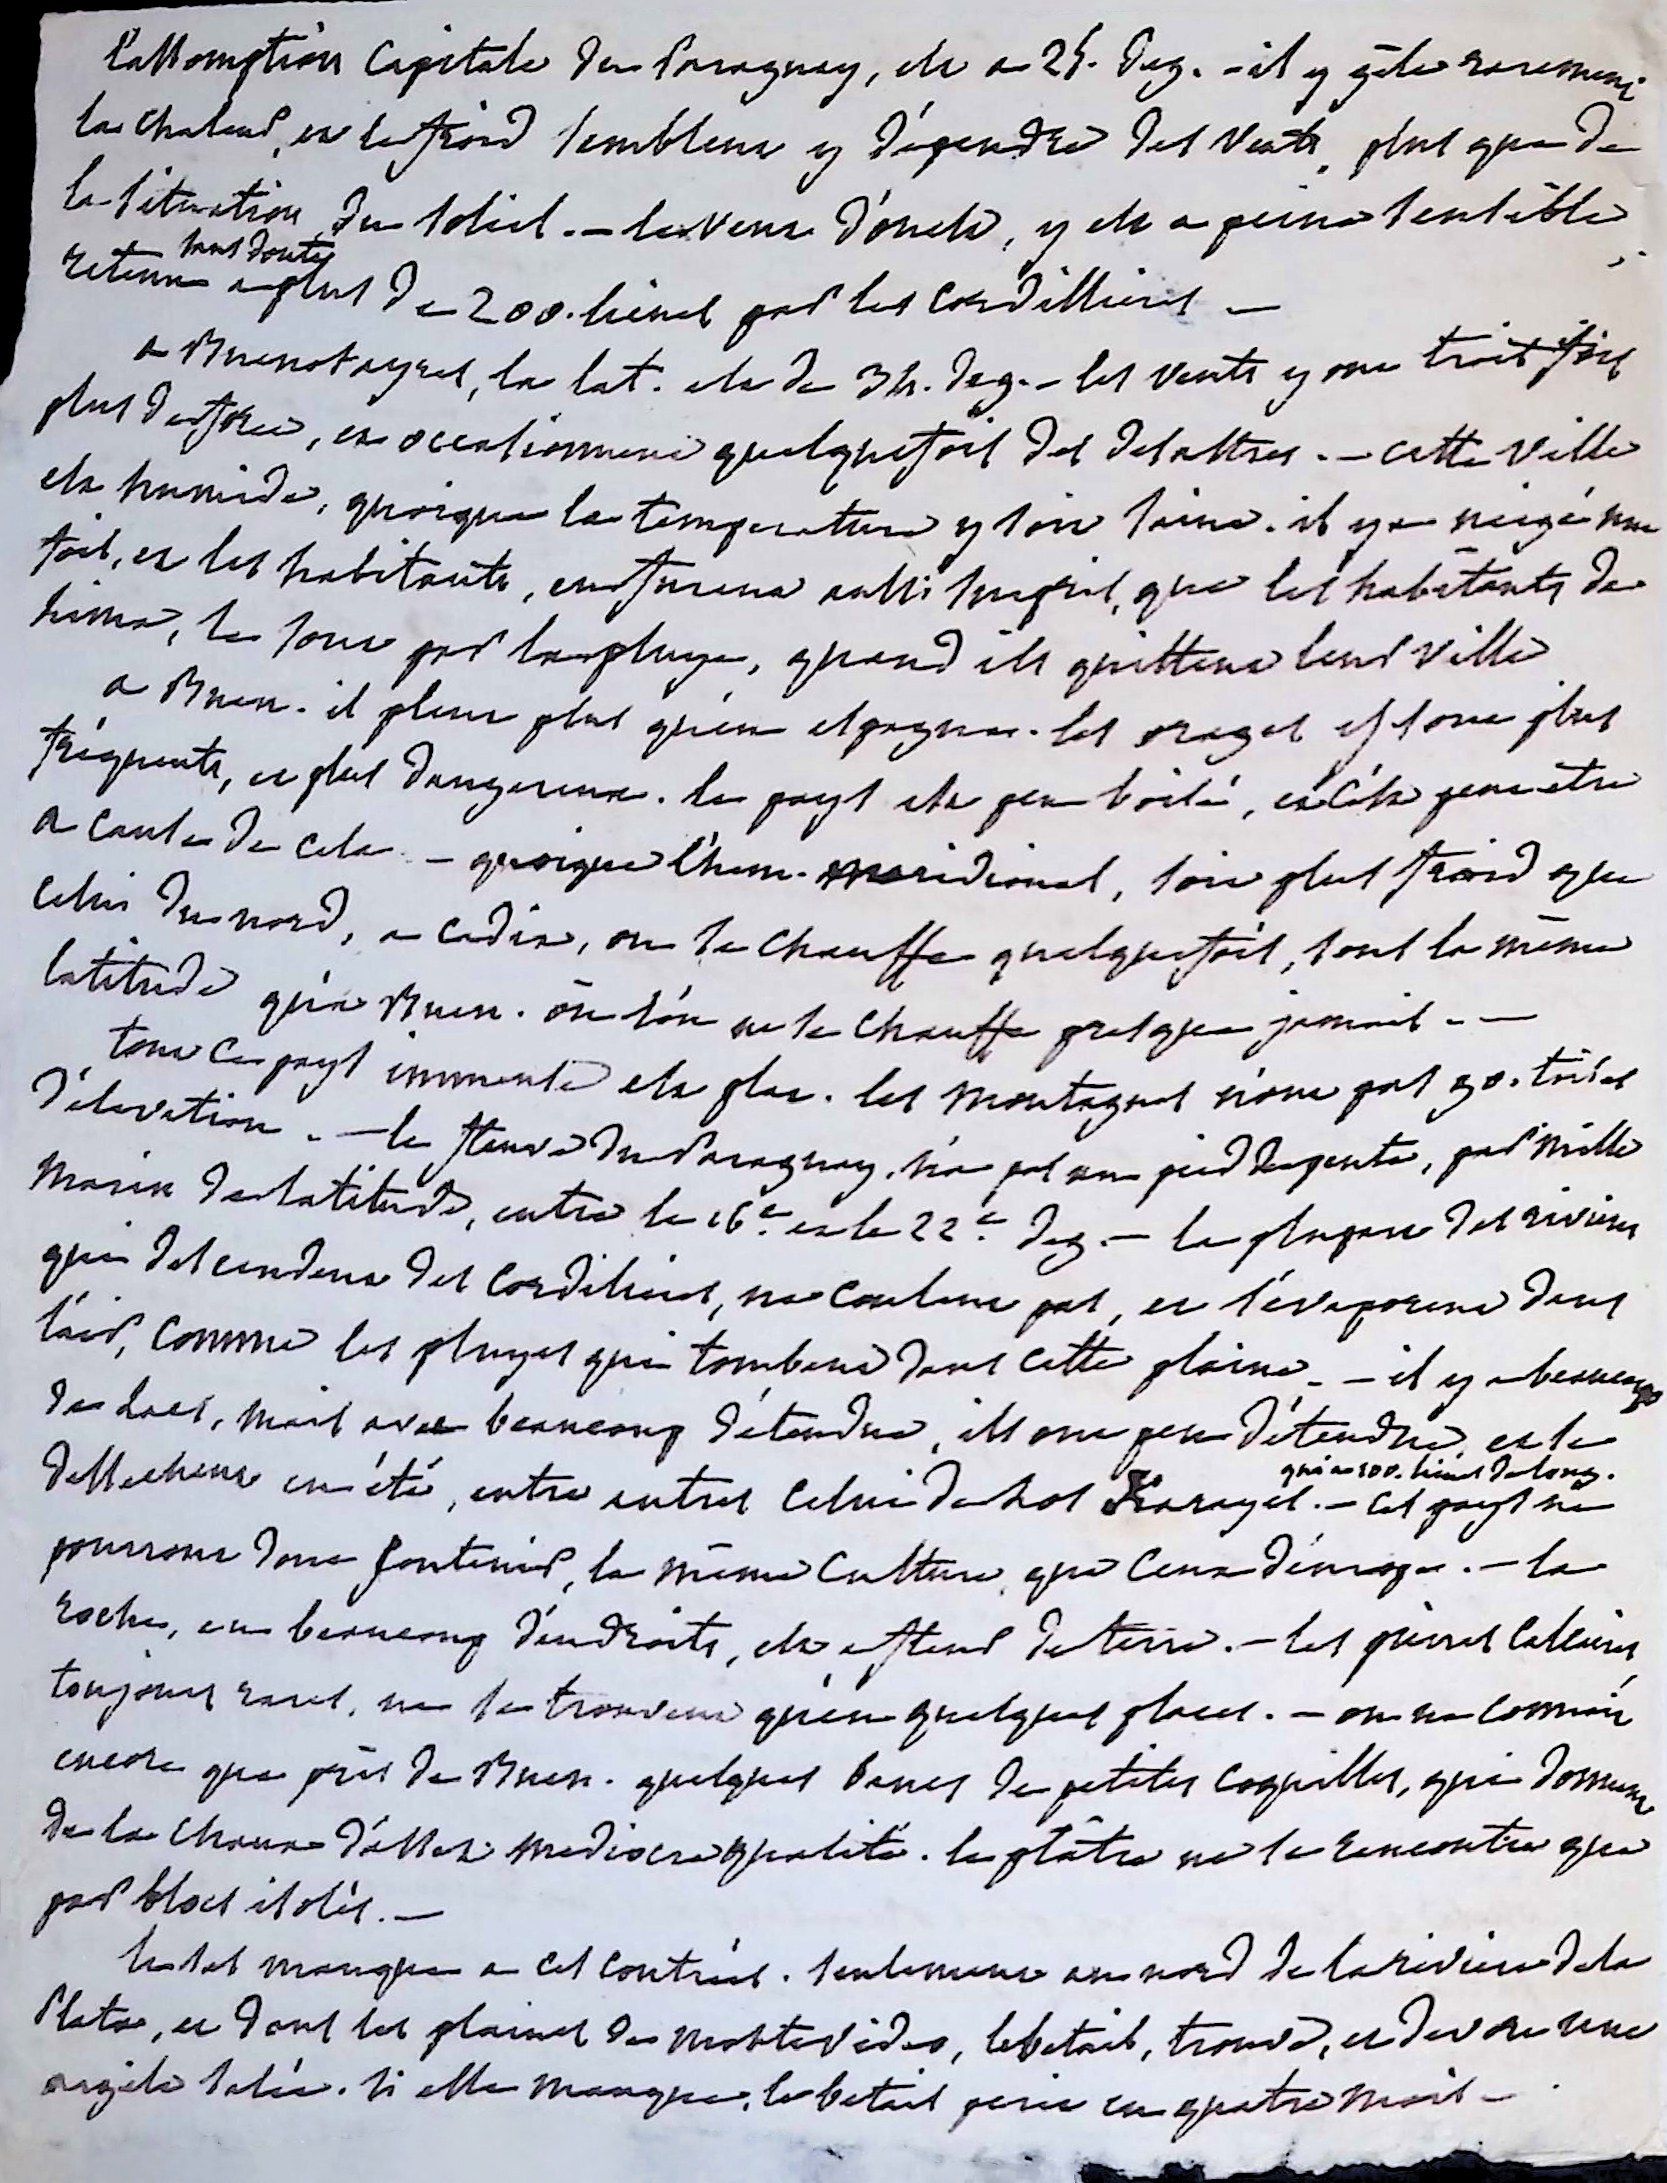 l'assomption Capitale du Paraguay, est a 25. deg. - il y gèle rarement
la chaleur, et le froid semblent y dépendre des vents, plus que de
la situation du soleil. - le vent d'ouest, y est a peine sensible,
sans doute
retenu a plus de 200. lieues par les Cordillieres -
a Buenos ayres, la lat. est de 34. deg. - les vents y ont trois fois
plus de force, et occasionnent quelquefois des desastres. - cette ville
est humide, quoique la temperature y soit saine. il y a neigé une
fois, et les habitants, en furent aussi surpris, que les habitants de
lima, le sont par la pluye, quand ils quittent leur ville
a Buen. il pleut plus qu'en espagne. les orages y sont plus
fréquents, et plus dangereux. le pays est peu boisé, et c'est peut être
a cause de cela - quoique l'hem. meridional, soit plus froid que
celui du nord, a Cadix, on se chauffe quelquefois, sous la même
latitude qu'a Buen. où l'on ne se chauffe presque jamais - -
tout ce pays immense est plat. les montagnes n'ont pas 90. toises
d'élevation. - le fleuve du Paraguay, n'a pas un pied de pente, par mille
marin de latitude, entre le 16e. et le 22e. deg. - la plupart des rivieres
qui descendent des Cordilieres, ne coulent pas, et s'évaporent dans
l'air, comme les pluyes qui tombent dans cette plaine. - il y a beaucoup
de lacs, mais avec beaucoup d'étendue, ils ont peu d'étendue, et se
qui a 100. lieues de long.
dessechent en été, entre autres celui de los Xarayes. - ces pays ne
pourront donc soutenir, la même culture, que ceux d'europe. - la
roche, en beaucoup d'endroits, est a fleur de terre. - les pierres calcaires
toujours rares, ne se trouvent qu'en quelques places. - on ne connoit
encore que près de Buen. quelques bancs de petites coquilles, qui donnent
de la chaux d'assez mediocre qualité. le plâtre ne se rencontre que
par blocs isolés. -
le sel manque a ces contrées. seulement au nord de la riviere de la
Plata, et dans les plaines de montevideo, le betail, trouve, et devore une
argile salée. si elle manque, le betail perit en quatre mois -